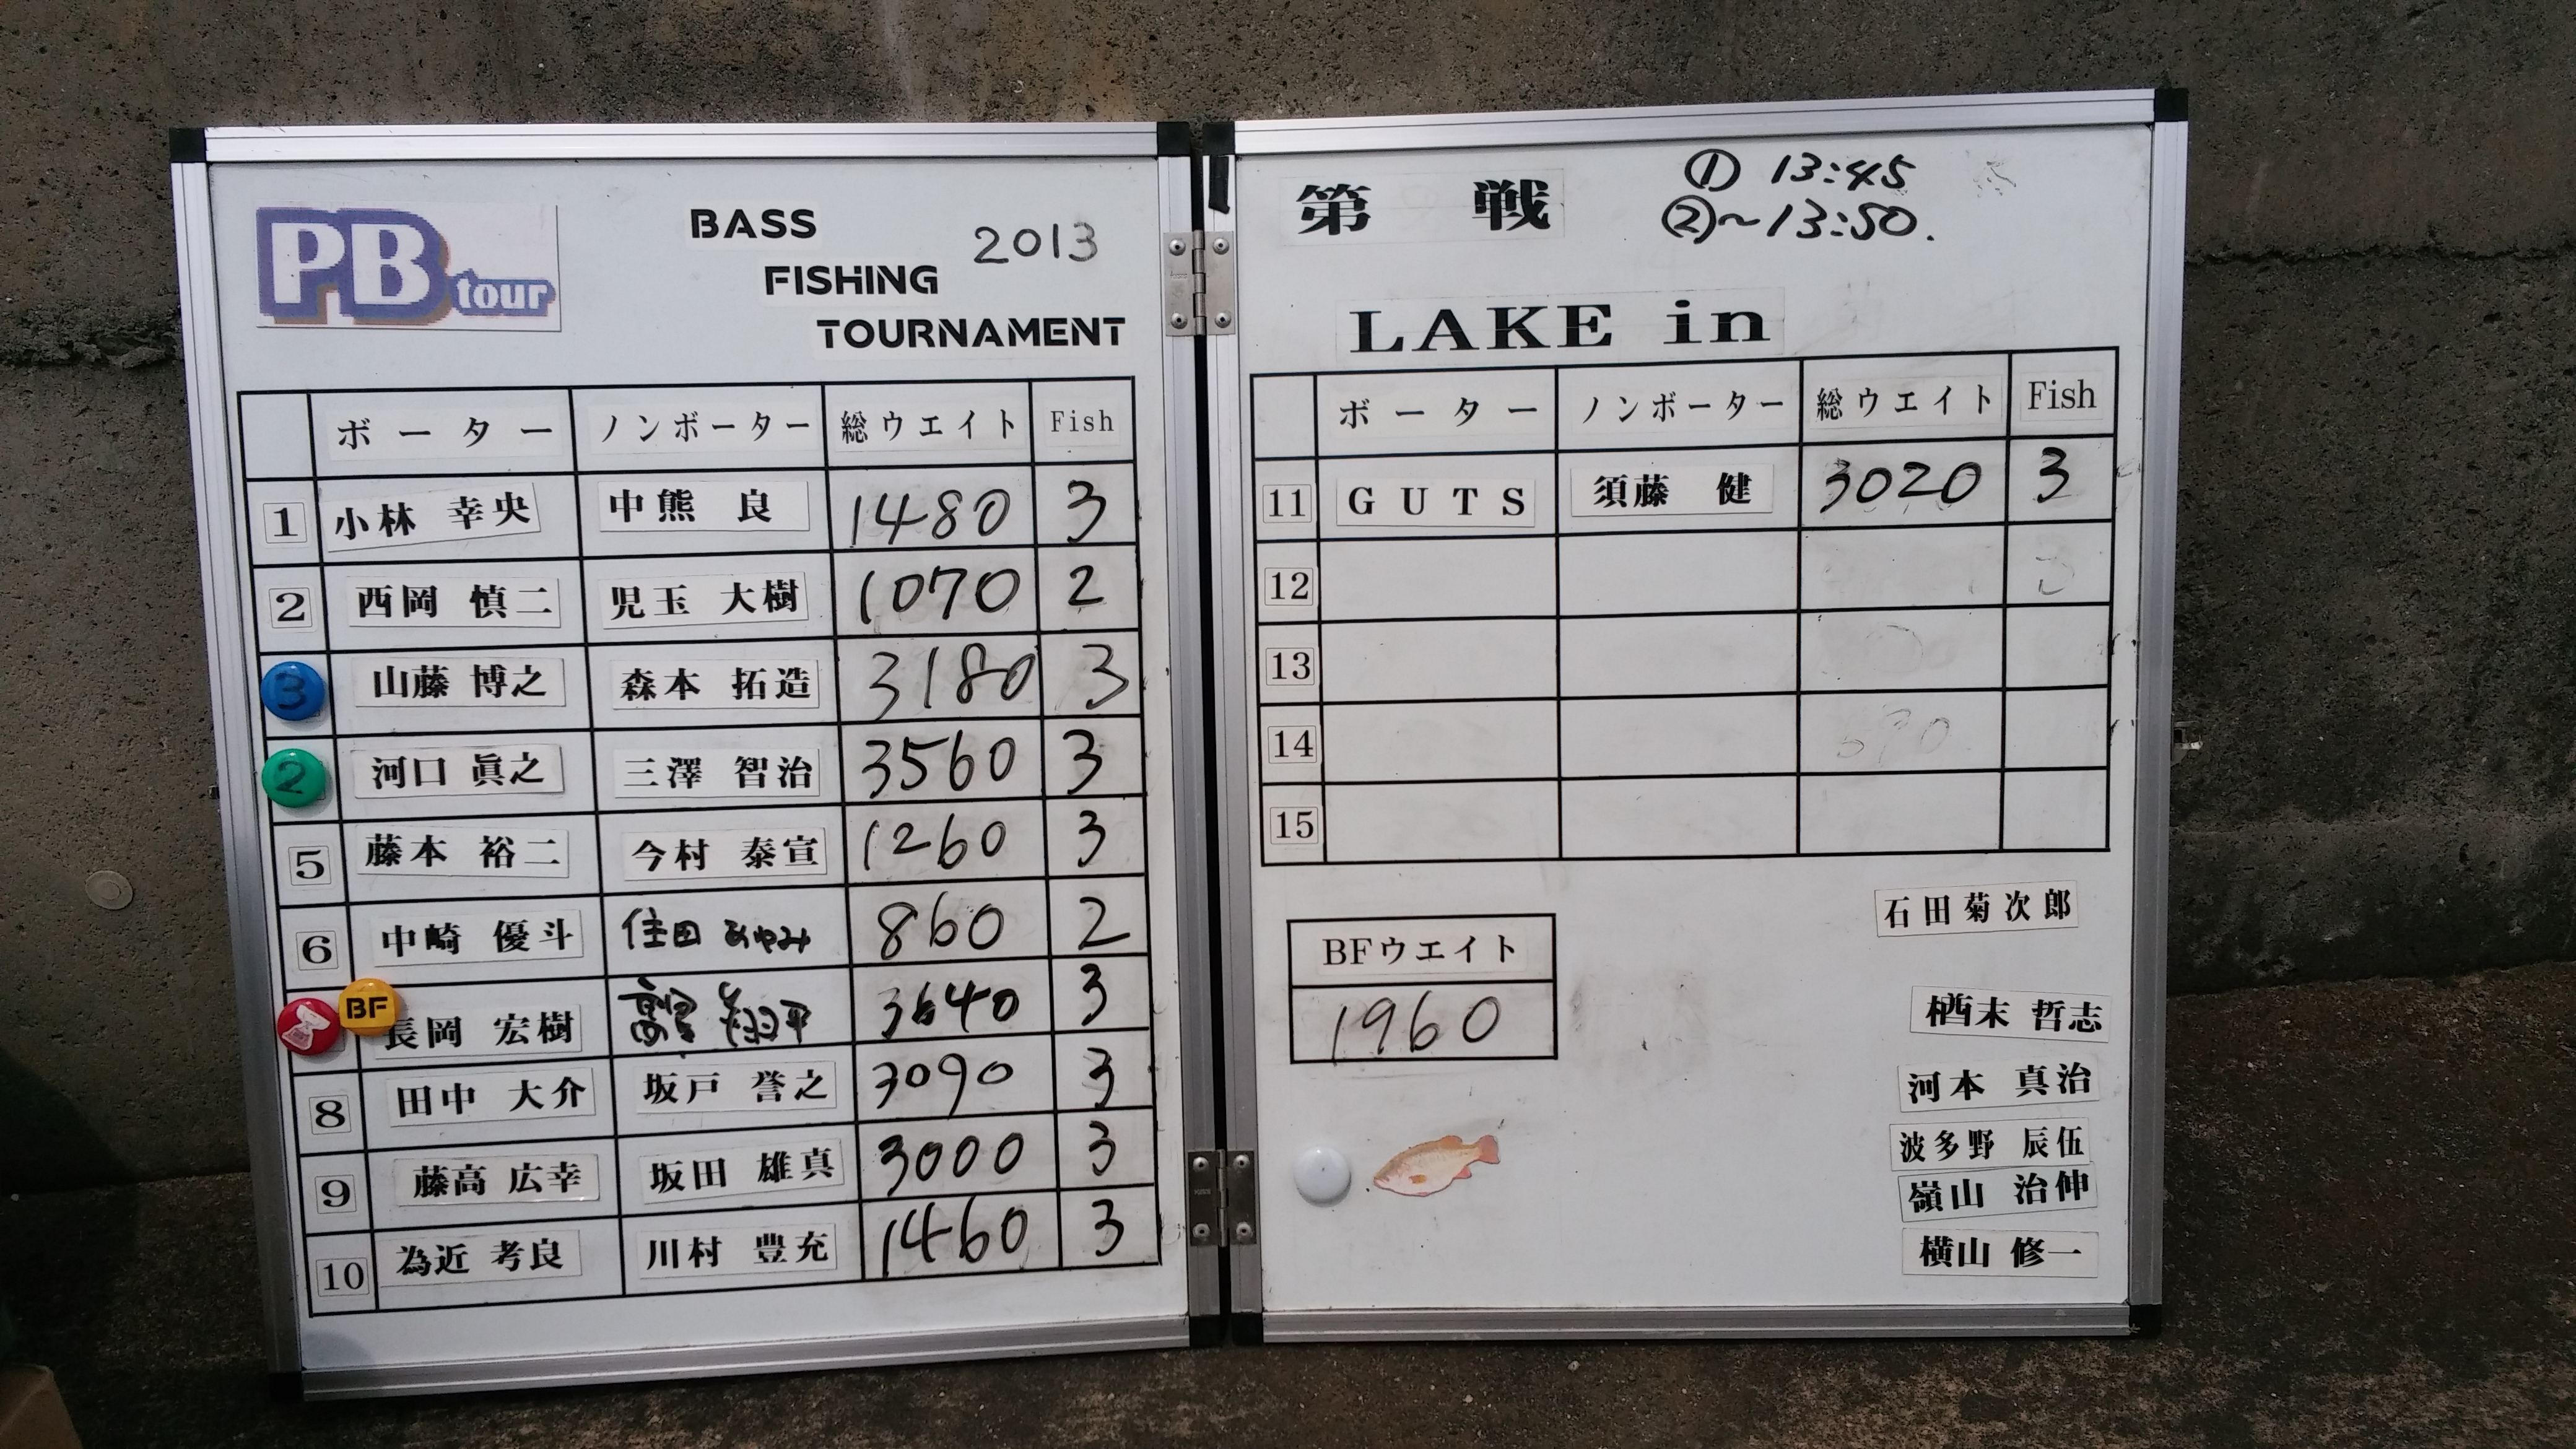 PB tour
BASS
FISHING
TOURNAMENT
2013
ボーター ノンボーター 総ウエイト Fish
1 小林 幸央 中熊 良 1480 3
2 西岡 慎二 児玉 大樹 1070 2
3 山藤 博之 森本 拓造 3180 3
2 河口 眞之 三澤 智治 3560 3
5 藤本 裕二 今村 泰宣 1260 3
6 中崎 優斗 住田 あゆみ 860 2
BF 長岡 宏樹 翔平 3640 3
8 田中 大介 坂戸 誉之 3090 3
9 藤高 広幸 坂田 雄真 3000 3
10 為近 考良 川村 豊充 1460 3
第 戦
① 13:45
②~13:50.
LAKE in
ボーター ノンボーター 総ウエイト Fish
11 GUTS 須藤 健 3020 3
12
13
14
15
BFウエイト
1960
石田菊次郎
楢末 哲志
河本 真治
波多野 辰伍
嶺山 治伸
横山 修一